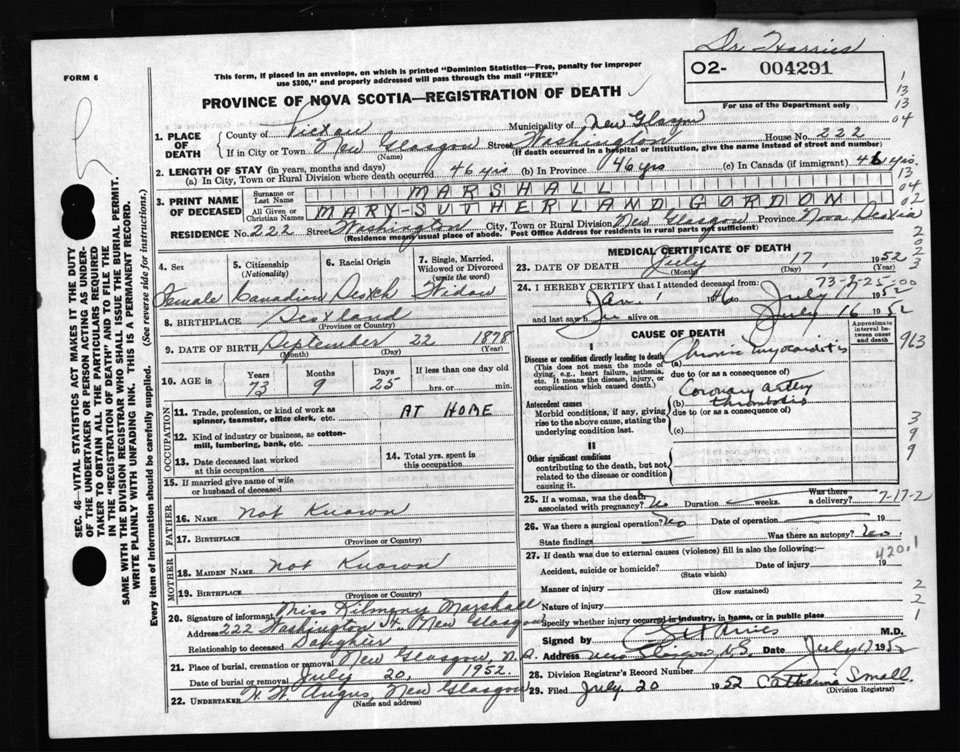 Dr. Harries
FORM 6
This form, if placed in an envelope, on which is printed "Dominion Statistics—Free, penalty for improper
use $300," and properly addressed will pass through the mail "FREE"
O2- 004291
PROVINCE OF NOVA SCOTIA—REGISTRATION OF DEATH
For use of the Department only
1. PLACE OF DEATH
County of Pictou Municipality of New Glasgow
If in City or Town New Glasgow Street Washington House No. 222
(Name) (If death occurred in a hospital or institution, give the name instead of street and number)
2. LENGTH OF STAY (in years, months and days)
(a) In City, Town or Rural Division where death occurred 46 yrs (b) In Province 46 yrs (c) In Canada (if immigrant) 46 yrs.
3. PRINT NAME OF DECEASED
Surname or Last Name MARSHALL
All Given or Christian Names MARY-SUTHERLAND GORDON
RESIDENCE No. 222 Street Washington City, Town or Rural Division New Glasgow Province Nova Scotia
(Residence means usual place of abode. Post Office Address for residents in rural parts not sufficient)
4. Sex
5. Citizenship (Nationality)
6. Racial Origin
7. Single, Married, Widowed or Divorced (write the word)
Female Canadian Scotch Widow
8. BIRTHPLACE Scotland
(Province or Country)
9. DATE OF BIRTH September 22 1878
(Month) (Day) (Year)
10. AGE in Years Months Days If less than one day old
73 9 25 hrs. or min.
OCCUPATION
11. Trade, profession, or kind of work as spinner, teamster, office clerk, etc. AT HOME
12. Kind of industry or business, as cotton-mill, lumbering, bank, etc.
13. Date deceased last worked at this occupation
14. Total yrs. spent in this occupation
15. If married give name of wife or husband of deceased
FATHER
16. NAME Not Known
17. BIRTHPLACE
(Province or Country)
MOTHER
18. MAIDEN NAME Not Known
19. BIRTHPLACE
(Province or Country)
20. Signature of informant Miss Kilmeny Marshall
Address 222 Washington St. New Glasgow
Relationship to deceased Daughter
21. Place of burial, cremation or removal New Glasgow, N.S.
Date of burial or removal July 20, 1952.
22. UNDERTAKER H. W. Angus, New Glasgow
(Name and address)
MEDICAL CERTIFICATE OF DEATH
23. DATE OF DEATH July 17, 1952
(Month) (Day) (Year)
73-9-25-00
24. I HEREBY CERTIFY that I attended deceased from:
Jan. 1 1946 to July 17 1952
and last saw h alive on July 16 1952
CAUSE OF DEATH
Approximate interval between onset and death
I
Disease or condition directly leading to death
(This does not mean the mode of dying, e.g., heart failure, asthenia, etc. It means the disease, injury, or complication which caused death.)
(a) Chronic myocarditis
due to (or as a consequence of)
Antecedent causes
Morbid conditions, if any, giving rise to the above cause, stating the underlying condition last.
(b) Coronary artery thrombosis
due to (or as a consequence of)
(c)
II
Other significant conditions
contributing to the death, but not related to the disease or condition causing it.
25. If a woman, was the death associated with pregnancy? No Duration weeks. Was there a delivery?
7-17-2
26. Was there a surgical operation? No Date of operation 19
State findings Was there an autopsy? no
27. If death was due to external causes (violence) fill in also the following:—
420.1
Accident, suicide or homicide? Date of injury 19
(State which)
Manner of injury
(How sustained)
Nature of injury
Specify whether injury occurred in industry, in home, or in public place
Signed by Harries M.D.
Address New Glasgow, N.S. Date July 17 1952
28. Division Registrar's Record Number
29. Filed July 20 1952 Catherine Small
(Division Registrar)
SEC. 46—VITAL STATISTICS ACT MAKES IT THE DUTY
OF THE UNDERTAKER OR PERSON ACTING AS UNDER-
TAKER TO OBTAIN ALL THE PARTICULARS REQUIRED
IN THE "REGISTRATION OF DEATH" AND TO FILE THE
SAME WITH THE DIVISION REGISTRAR WHO SHALL ISSUE THE BURIAL PERMIT.
WRITE PLAINLY WITH UNFADING INK. THIS IS A PERMANENT RECORD.
Every item of information should be carefully supplied. (See reverse side for instructions.)
1
13
13
04
13
04
02
2
0
2
3
963
3
9
9
2
2
1